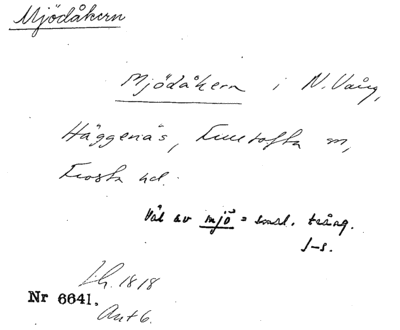 Mjödåkern
Mjödåkern i N. Vång,
Häggenäs, Fulltofta m,
Frosta hd.
Väl av mjö = smal.
J-s.
1818
Nr 6641.
Akt 6.